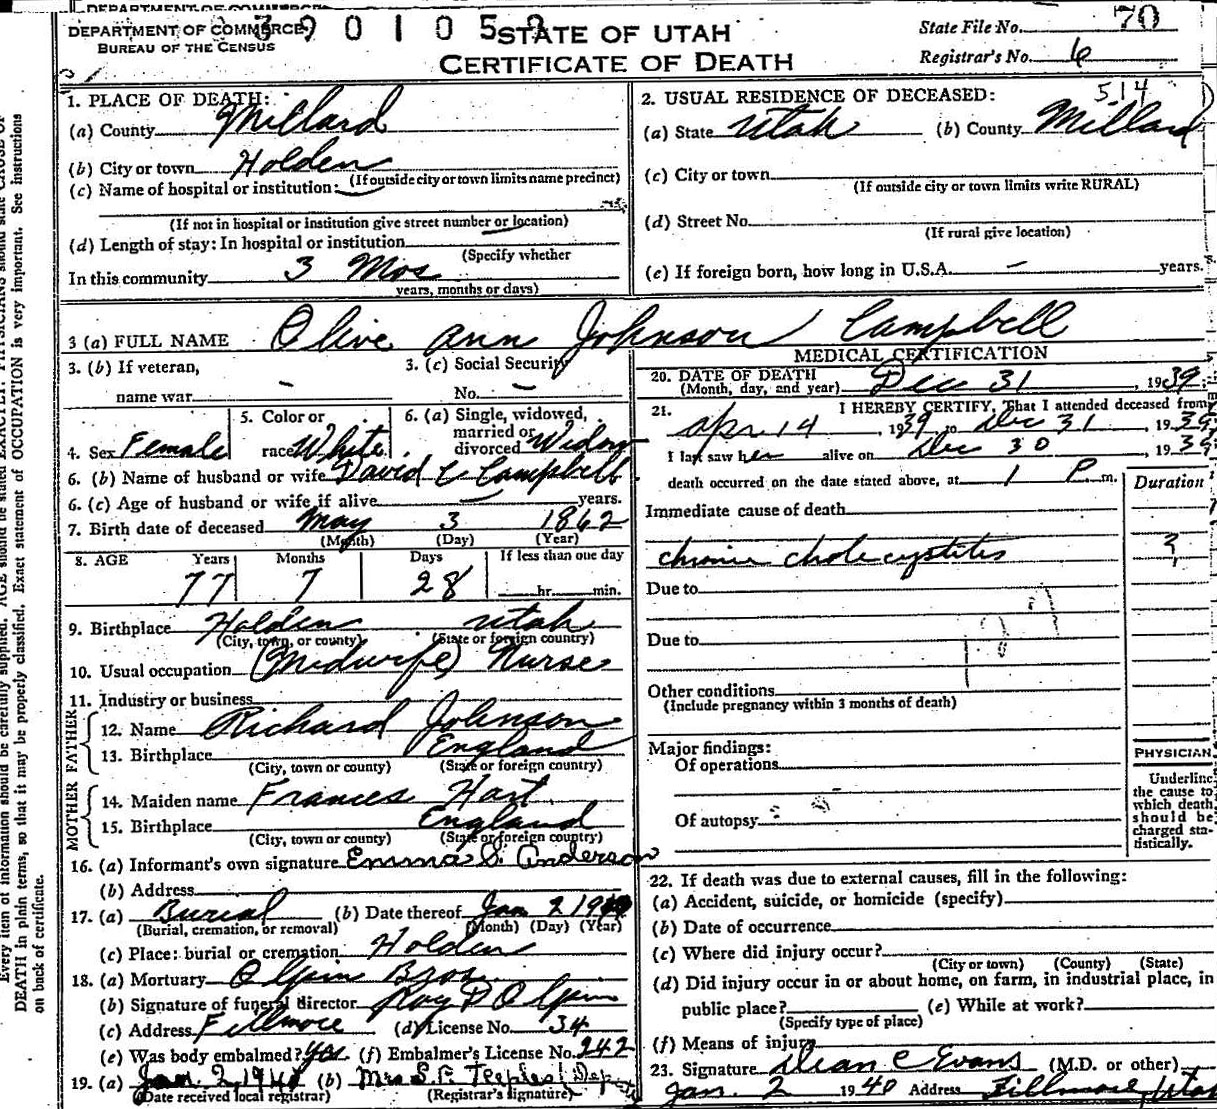 DEPARTMENT OF COMMERCE
DEPARTMENT OF COMMERCE 390105 STATE OF UTAH State File No. 70
BUREAU OF THE CENSUS CERTIFICATE OF DEATH Registrar's No. 6
1. PLACE OF DEATH:
(a) County Millard
(b) City or town Holden
(If outside city or town limits name precinct)
(c) Name of hospital or institution:
(If not in hospital or institution give street number or location)
(d) Length of stay: In hospital or institution
(Specify whether
In this community 3 Mos
years, months or days)
2. USUAL RESIDENCE OF DECEASED: 514
(a) State Utah (b) County Millard
(c) City or town
(If outside city or town limits write RURAL)
(d) Street No.
(If rural give location)
(e) If foreign born, how long in U.S.A. – years.
3 (a) FULL NAME Olive Ann Johnson Campbell
3. (b) If veteran, 3. (c) Social Security
name war – No. –
4. Sex Female 5. Color or race White 6. (a) Single, widowed, married or divorced Widow
6. (b) Name of husband or wife David C Campbell
6. (c) Age of husband or wife if alive – years.
7. Birth date of deceased May 3 1862
(Month) (Day) (Year)
8. AGE Years Months Days If less than one day
77 7 28 hr. min.
9. Birthplace Holden Utah
(City, town, or county) (State or foreign country)
10. Usual occupation (Midwife) Nurse
11. Industry or business
FATHER
12. Name Richard Johnson
13. Birthplace England
(City, town or county) (State or foreign country)
MOTHER
14. Maiden name Frances Hart
15. Birthplace England
(City, town or county) (State or foreign country)
16. (a) Informant's own signature Emma S. Anderson
(b) Address
17. (a) Burial (b) Date thereof Jan 2 1940
(Burial, cremation, or removal) (Month) (Day) (Year)
(c) Place: burial or cremation Holden
18. (a) Mortuary Olpin Bros.
(b) Signature of funeral director Roy P Olpin
(c) Address Fillmore (d) License No. 34
(e) Was body embalmed? Yes. (f) Embalmer's License No. 242
19. (a) Jan. 2, 1940 (b) Mrs S. P. Teeples Deputy
(Date received local registrar) (Registrar's signature)
MEDICAL CERTIFICATION
20. DATE OF DEATH
(Month, day, and year) Dec 31, 1939
21. I HEREBY CERTIFY, That I attended deceased from
Apr 14, 1939, to Dec 31, 1939
I last saw her alive on Dec 30, 1939
death occurred on the date stated above, at 1 P. m. Duration
Immediate cause of death
chronic cholecystitis ?
Due to
Due to
Other conditions
(Include pregnancy within 3 months of death)
Major findings:
Of operations
Of autopsy
PHYSICIAN
Underline
the cause to
which death
should be
charged sta-
tistically.
22. If death was due to external causes, fill in the following:
(a) Accident, suicide, or homicide (specify)
(b) Date of occurrence
(c) Where did injury occur?
(City or town) (County) (State)
(d) Did injury occur in or about home, on farm, in industrial place, in
public place? (e) While at work?
(Specify type of place)
(f) Means of injury
23. Signature Dean C Evans (M.D. or other)
Jan. 2 1940 Address Fillmore, Utah
Every item of information should be carefully supplied. AGE should be stated EXACTLY. PHYSICIANS should state CAUSE OF
DEATH in plain terms, so that it may be properly classified. Exact statement of OCCUPATION is very important. See instructions
on back of certificate.